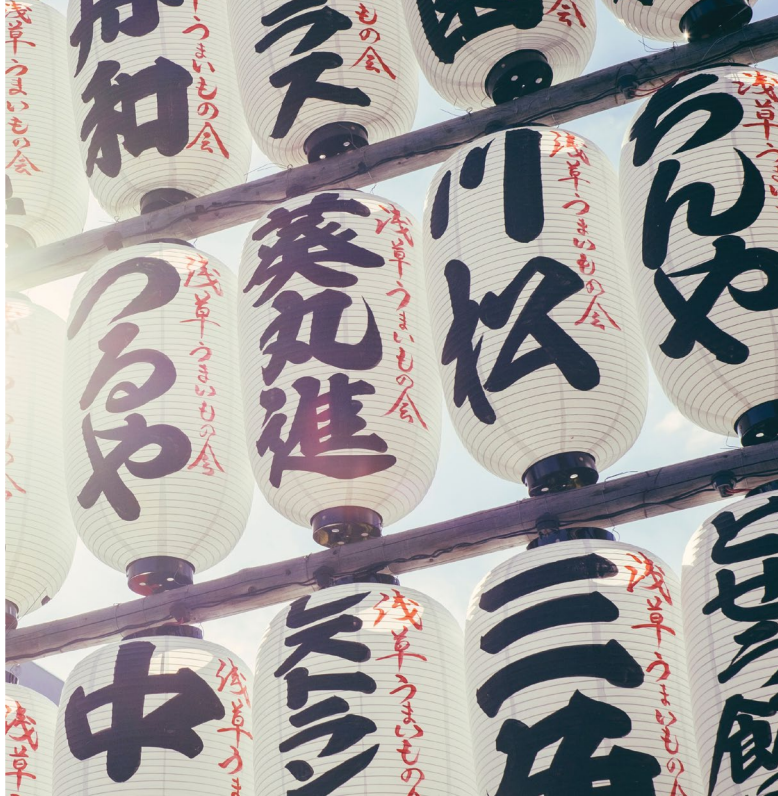 浅草うまいもの会
和
浅草うまいもの会
ラス
もの会
会
つるや
浅草うまいもの会
葵丸進
浅草うまいもの会
川松
浅草うまいもの会
ちんや
浅草
浅草
中
浅草うま
レストラン
浅草うまいもの会
三
浅草うまいもの
どぜう飯